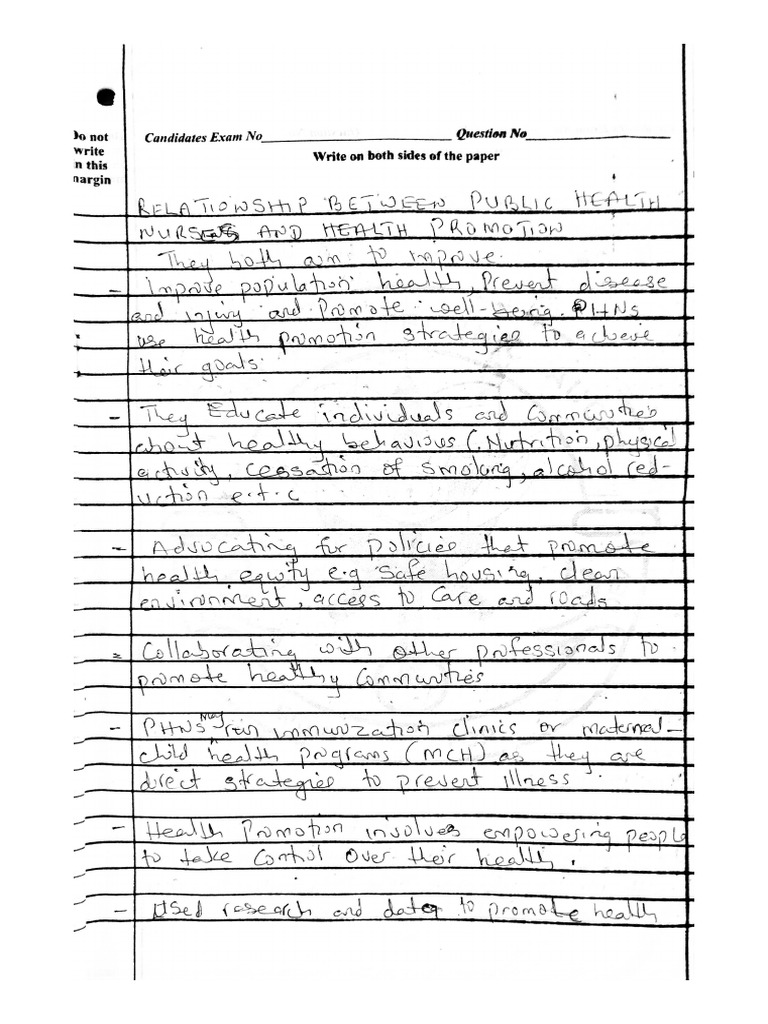 Do not
write
n this
nargin
Candidates Exam No
Question No
Write on both sides of the paper
RELATIONSHIP BETWEEN PUBLIC HEALTH
NURSES AND HEALTH PROMOTION
They both aim to improve.
- Improve population health, Prevent disease
and injury and Promote well-being. PHNs
use health promotion strategies to achieve
their goals.
- They Educate individuals and Communities
about healthy behaviours (Nutrition, physical
activity, cessation of smoking, alcohol red-
uction e.t.c
- Advocating for policies that promote
health equity e.g safe housing, clean
environment, access to Care and roads
- Collaborating with other professionals to
promote healthy Communities
- PHNs may run immunization clinics or maternal-
child health programs (MCH) as they are
direct strategies to prevent illness.
- Health Promotion involves empowering people
to take Control over their health.
- Used research and data to promote health